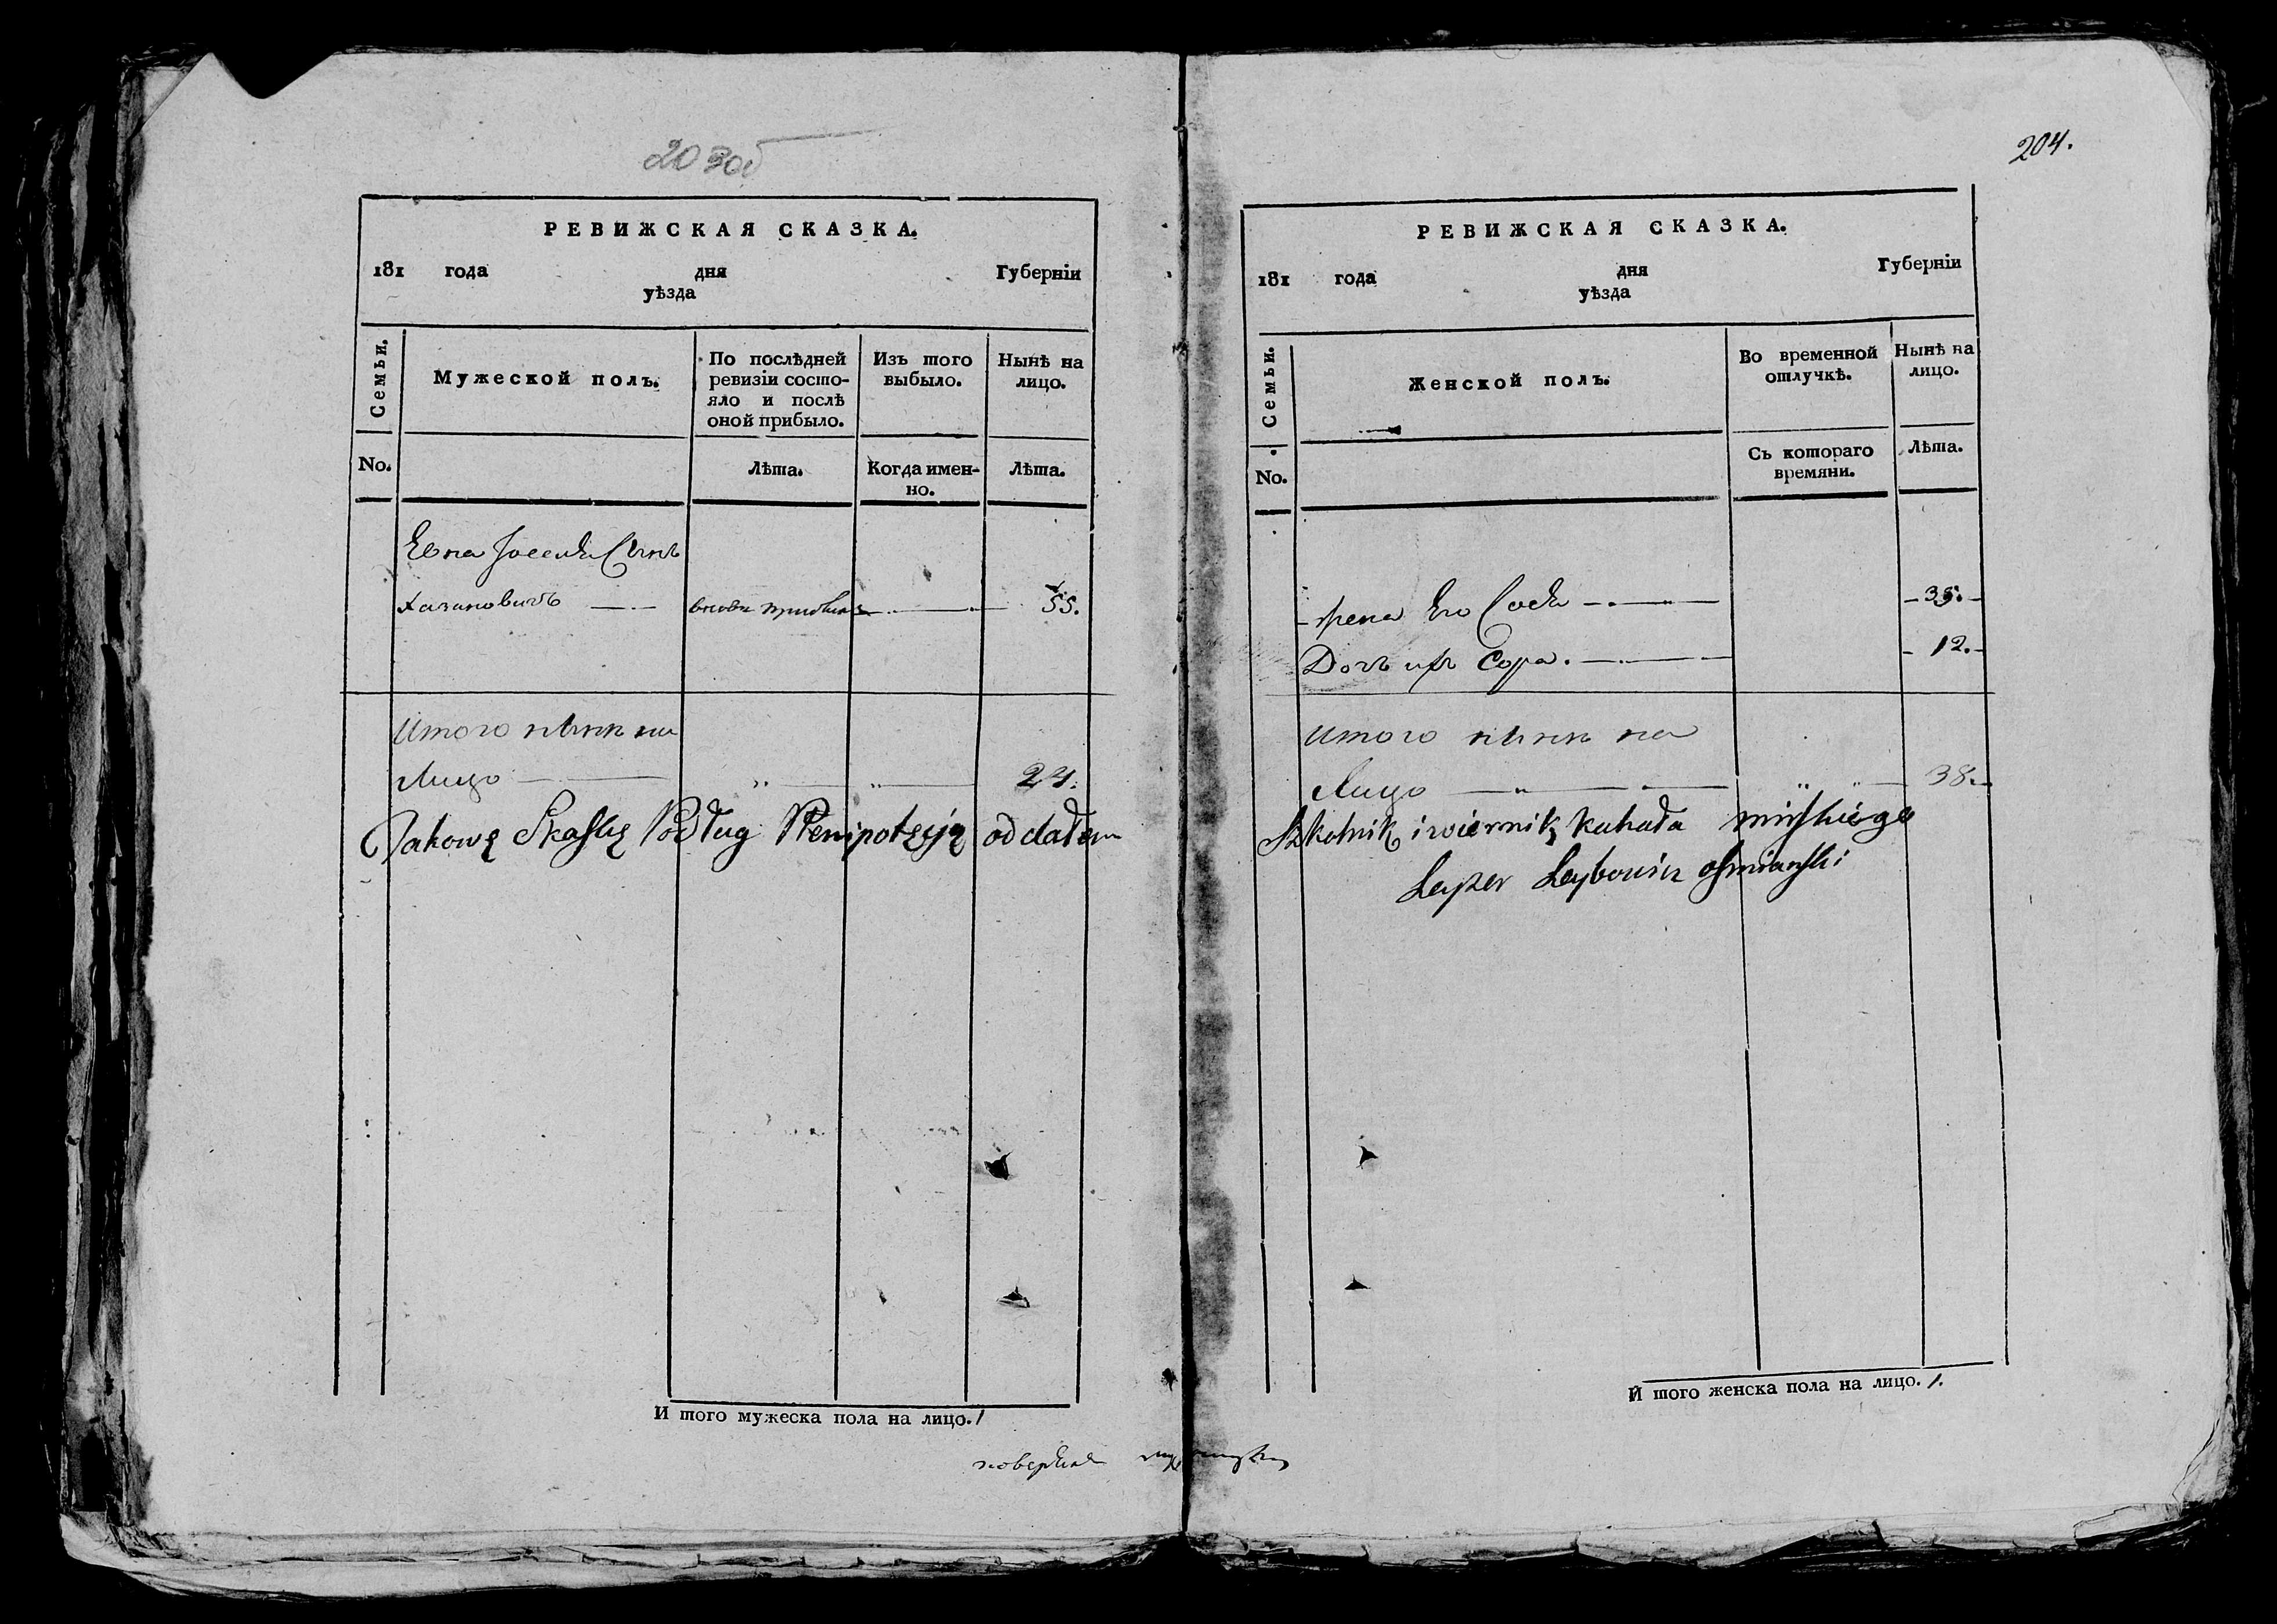 203об
РЕВИЖСКАЯ СКАЗКА.
181 года дня Губерніи
уѣзда
Семьи.
Мужеской полъ.
По послѣдней ревизіи состо-
яло и послѣ
оной прибыло.
Изъ того выбыло.
Нынѣ на лицо.
No.
Лѣта.
Когда имен-
но.
Лѣта.
Сынъ
Хазановичъ — вновь 55.
Итого нынѣ на
Лицо — 24.
Takowę Skaskę Podług Plenipotęcję oddałem
И того мужеска пола на лицо. 1
204.
РЕВИЖСКАЯ СКАЗКА.
181 года дня Губерніи
уѣзда
Семьи.
Женской полъ.
Во временной отлучкѣ.
Нынѣ на лицо.
No.
Съ котораго времяни.
Лѣта.
Его — 35.
Дочь ихъ Сора. — 12.
Итого нынѣ на
Лицо — 38.
Szkolnik i wiernik kahała mirskiego
Leyzer Leybowicz oszmianski
И того женска пола на лицо. 1.